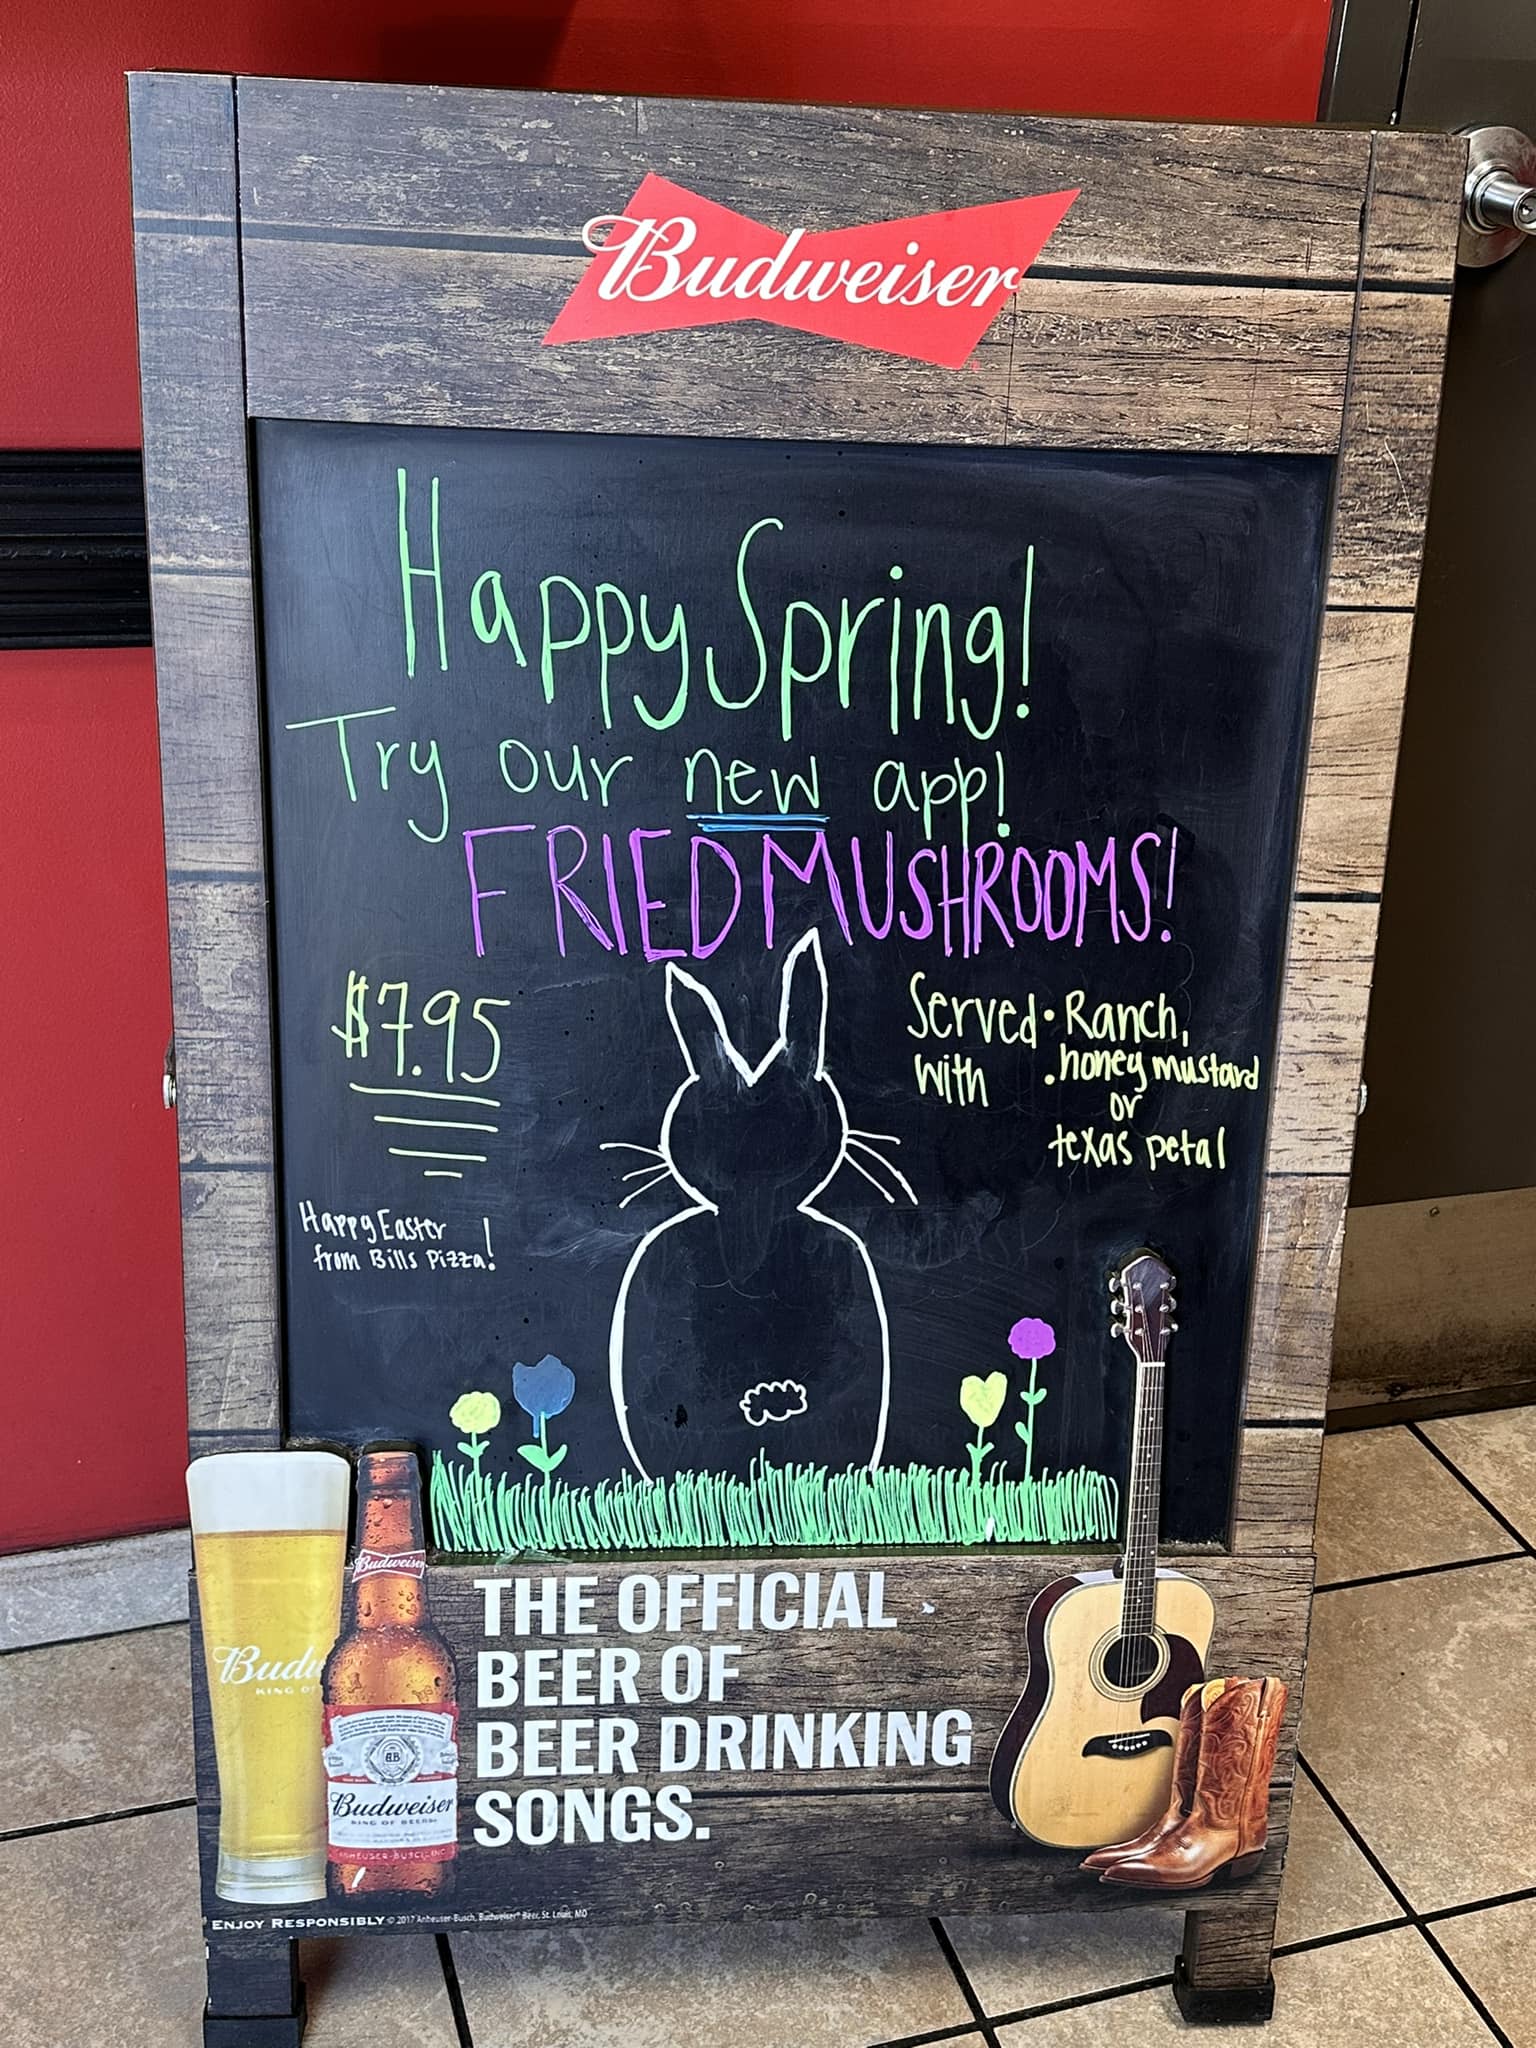 Budweiser
Happy Spring!
Try our new app!
FRIED MUSHROOMS!
$7.95
Served • Ranch,
with • honey mustard
or
texas petal
Happy Easter
from Bills Pizza!
Budweiser
KING OF
Budweiser
KING OF BEERS
ANHEUSER-BUSCH, INC
THE OFFICIAL
BEER OF
BEER DRINKING
SONGS.
ENJOY RESPONSIBLY © 2017 Anheuser-Busch, Budweiser® Beer, St. Louis, MO